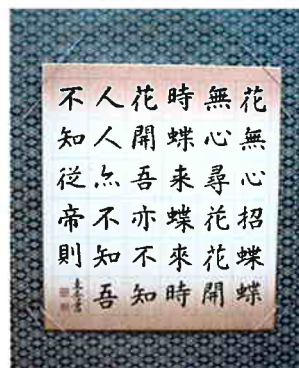 花無心招蝶蝶
無心尋花花開
時蝶来蝶來時
花開吾亦不知
人人亦不知吾
不知従帝則